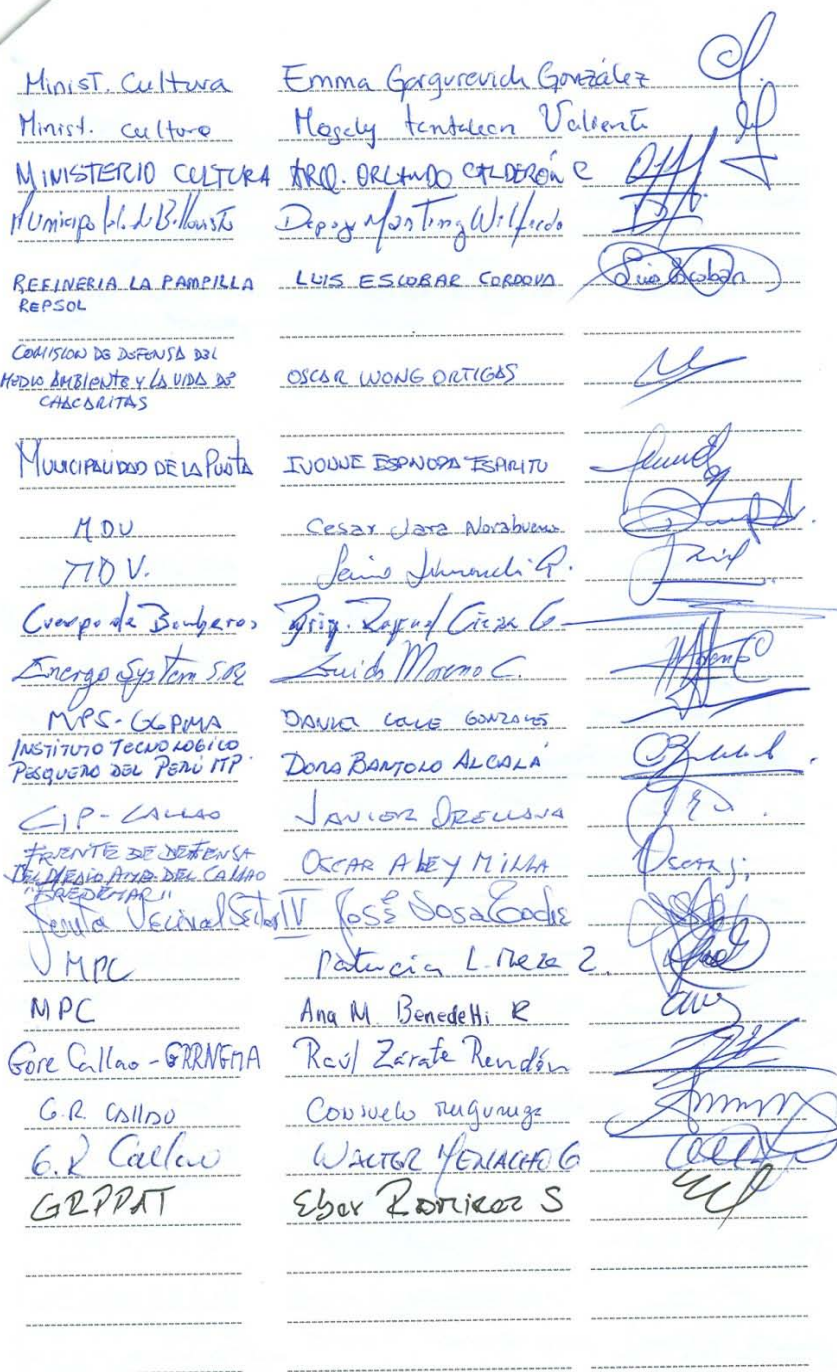 Minist. Cultura Emma Gorgurevich González
Minist. Cultura Magaly Tantalean Valiente
MINISTERIO CULTURA ARQ. ORLANDO CALDERÓN C
Wilfredo
REFINERIA LA PAMPILLA LUIS ESCOBAR CORDOVA Luis Escobar
REPSOL
COMISION DE DEFENSA DEL
MEDIO AMBIENTE Y LA VIDA DE OSCAR WONG ORTIGAS
CHACARITAS
MUNICIPALIDAD DE LA PUNTA IVONNE ESPINOZA ESPIRITU
MDV Cesar Jara Norabuena
MDV.
Cuerpo de Bomberos Brig. Cieza G.
Energo System Guido Moreno C.
MPS-GGPMA DANIEL GONZALES
INSTITUTO TECNOLOGICO
PESQUERO DEL PERÚ ITP. DORA BARTOLO ALCALÁ
CIP-CALLAO JAVIER ORELLANA
FRENTE DE DEFENSA
DEL MEDIO AMB. DEL CALLAO OSCAR ALEY MILLA Oscar
"FREDEMAR"
Junta Vecinal Sector IV José Sosa
MPC Patricia L. Meza Z.
MPC Ana M. Benedetti R
Gore Callao-GRRNGMA Raúl Zárate Rendón
G.R. CALLAO Consuelo
G.R Callao WALTER MENACHO G
GRPPAT Eber RAMIREZ S